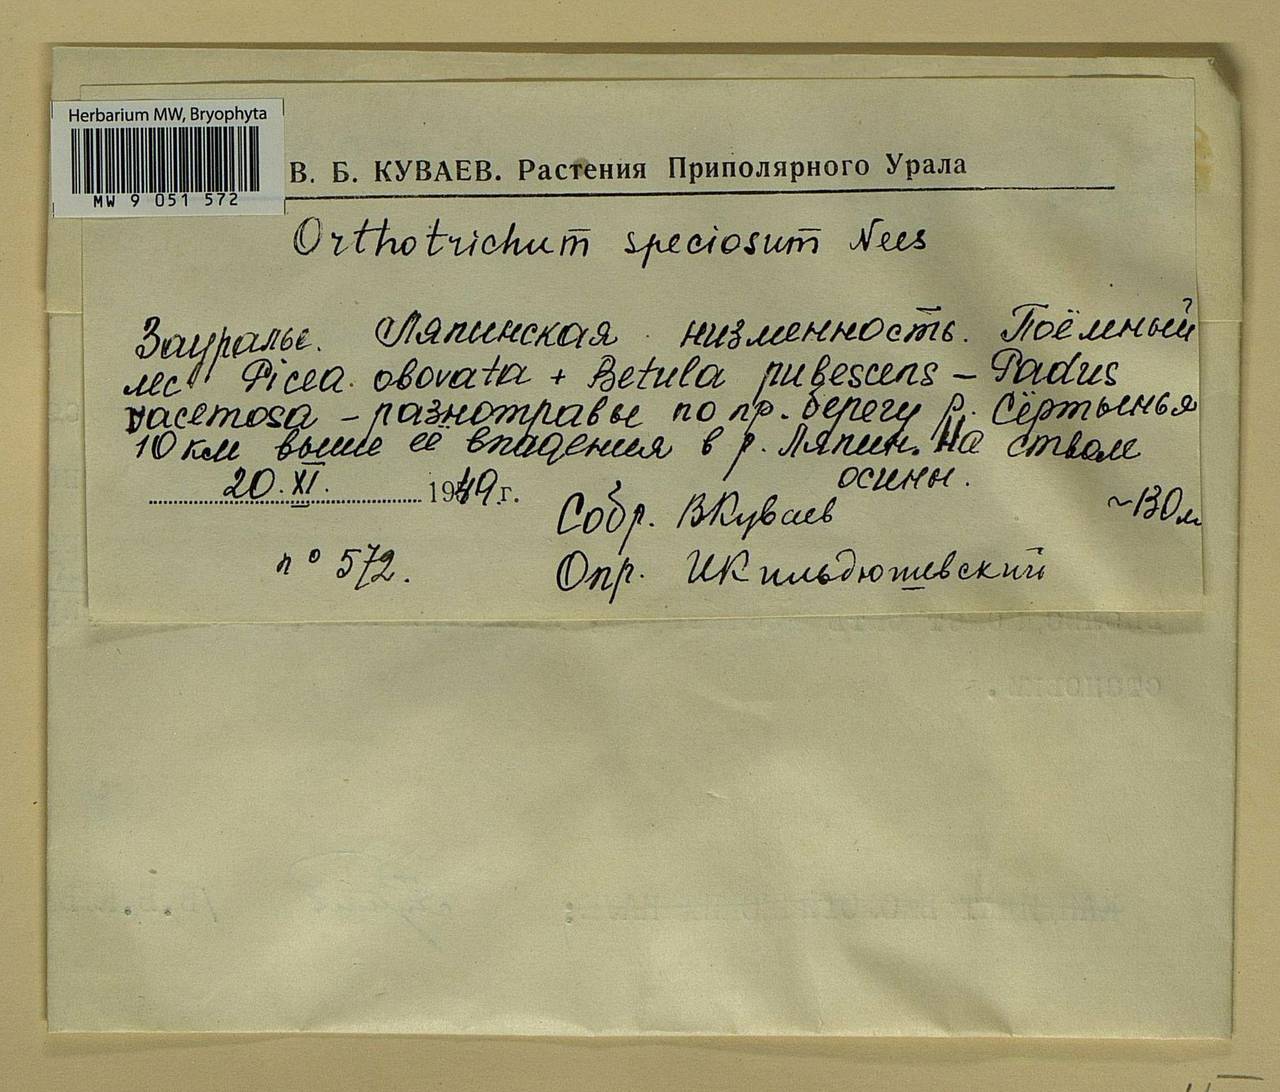 Herbarium MW, Bryophyta
MW 9 051 572
В. Б. КУВАЕВ. Растения Приполярного Урала
Orthotrichum speciosum Nees
Зауралье. Ляпинская низменность. Поёмный
лес Picea obovata + Betula pubescens – Padus
racemosa – разнотравье по пр. берегу р. Сёртынья
10 км выше её впадения в р. Ляпин. На стволе
осины.
20. XI. 1949 г.
~130 м
Собр. В Куваев
n° 572.
Опр. И Кильдюшевский